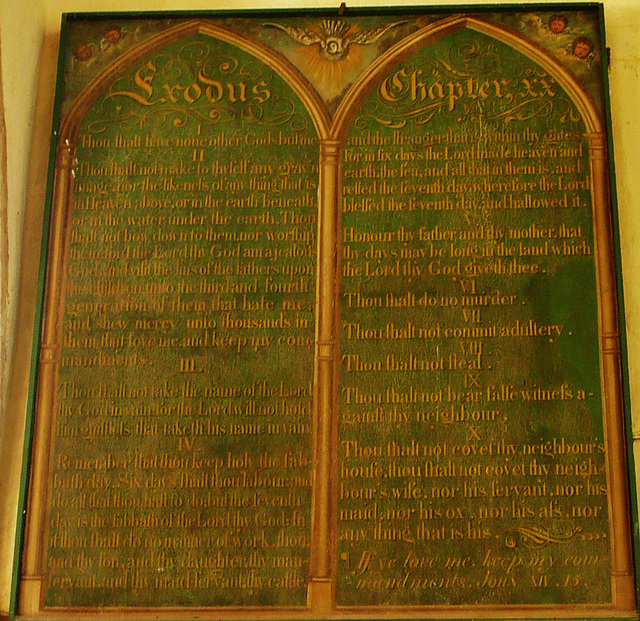 Exodus
I
Thou shalt have none other Gods but me.
II
Thou shalt not make to thyself any grav
image, nor the likeness of any thing that is
in Heaven above, or in the earth beneath
or in the water under the earth. Thou
shalt not bow down to them, nor worship
them, for I the Lord thy God am a jealous
God, and visit the sins of the fathers upon
the children unto the third and fourth
generation of them that hate me,
and shew mercy unto thousands in
them that love me, and keep my com
mandments.
III.
Thou shalt not take the name of the Lord
thy God in vain for the Lord will not hold
him guiltless that taketh his name in vain
IV.
Remember that thou keep holy the sab-
bath day. Six days shalt thou labour, and
do all that thou hast to do, but the seventh
day is the sabbath of the Lord thy God: In
it thou shalt do no manner of work, thou
and thy son, and thy daughter, thy man-
servant, and thy maid servant, thy cattle,
Chapter, XX
and the stranger that is within thy gates
for in six days the Lord made heaven and
earth, the sea, and all that in them is, and
rested the seventh day, wherefore the Lord
blessed the seventh day, and hallowed it.
V
Honour thy father, and thy mother, that
thy days may be long in the land which
the Lord thy God giveth thee.
VI
Thou shalt do no murder.
VII
Thou shalt not commit adultery.
VIII
Thou shalt not steal.
IX
Thou shalt not bear false witness a-
gainst thy neighbour.
X
Thou shalt not covet thy neighbour's
house, thou shalt not covet thy neigh-
bour's wife, nor his servant, nor his
maid, nor his ox, nor his ass, nor
any thing that is his.
If ye love me, keep my com-
mandments. John XIV. 15.